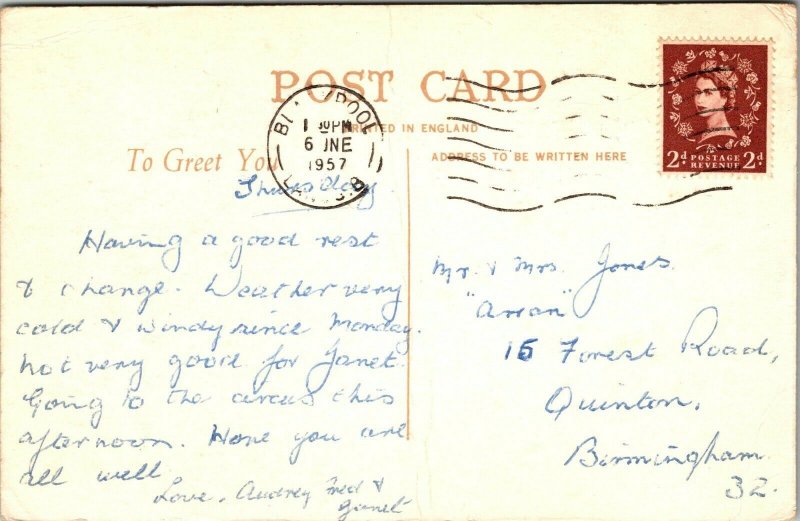 POST CARD
PRINTED IN ENGLAND
To Greet You
ADDRESS TO BE WRITTEN HERE
BLACKPOOL
PM
6 JNE
1957
LANCS
2d POSTAGE REVENUE 2d
Thursday
Having a good rest
& change. Weather very
cold & windy since Monday.
not very good for Janet.
Going to the circus this
afternoon. Hope you are
all well
Love, Audrey Fred &
Janet
Mr. & Mrs. Jones.
"Arran"
15 Forest Road,
Quinton,
Birmingham
32.